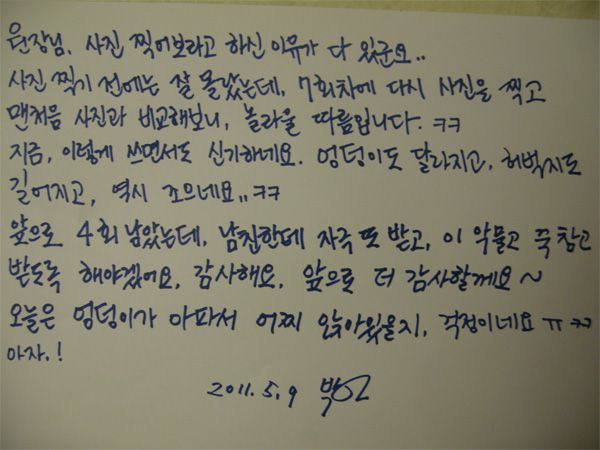 원장님, 사진 찍어보라고 하신 이유가 다 있군요..
사진 찍기 전에는 잘 몰랐는데, 7회차에 다시 사진을 찍고
맨처음 사진과 비교해보니, 놀라울 따름입니다. ㅋㅋ
지금, 이렇게 쓰면서도 신기하네요. 엉덩이도 달라지고, 허벅지도
길어지고, 역시 조으네요,, ㅋㅋ
앞으로 4회 남았는데, 남친한테 자극 또 받고, 이 악물고 꾹 참고
받도록 해야겠어요, 감사해요, 앞으로 더 감사할께요~
오늘은 엉덩이가 아파서 어찌 앉아있을지, 걱정이네요 ㅠ ㅋㅋ
아자.!
2011.5.9 박